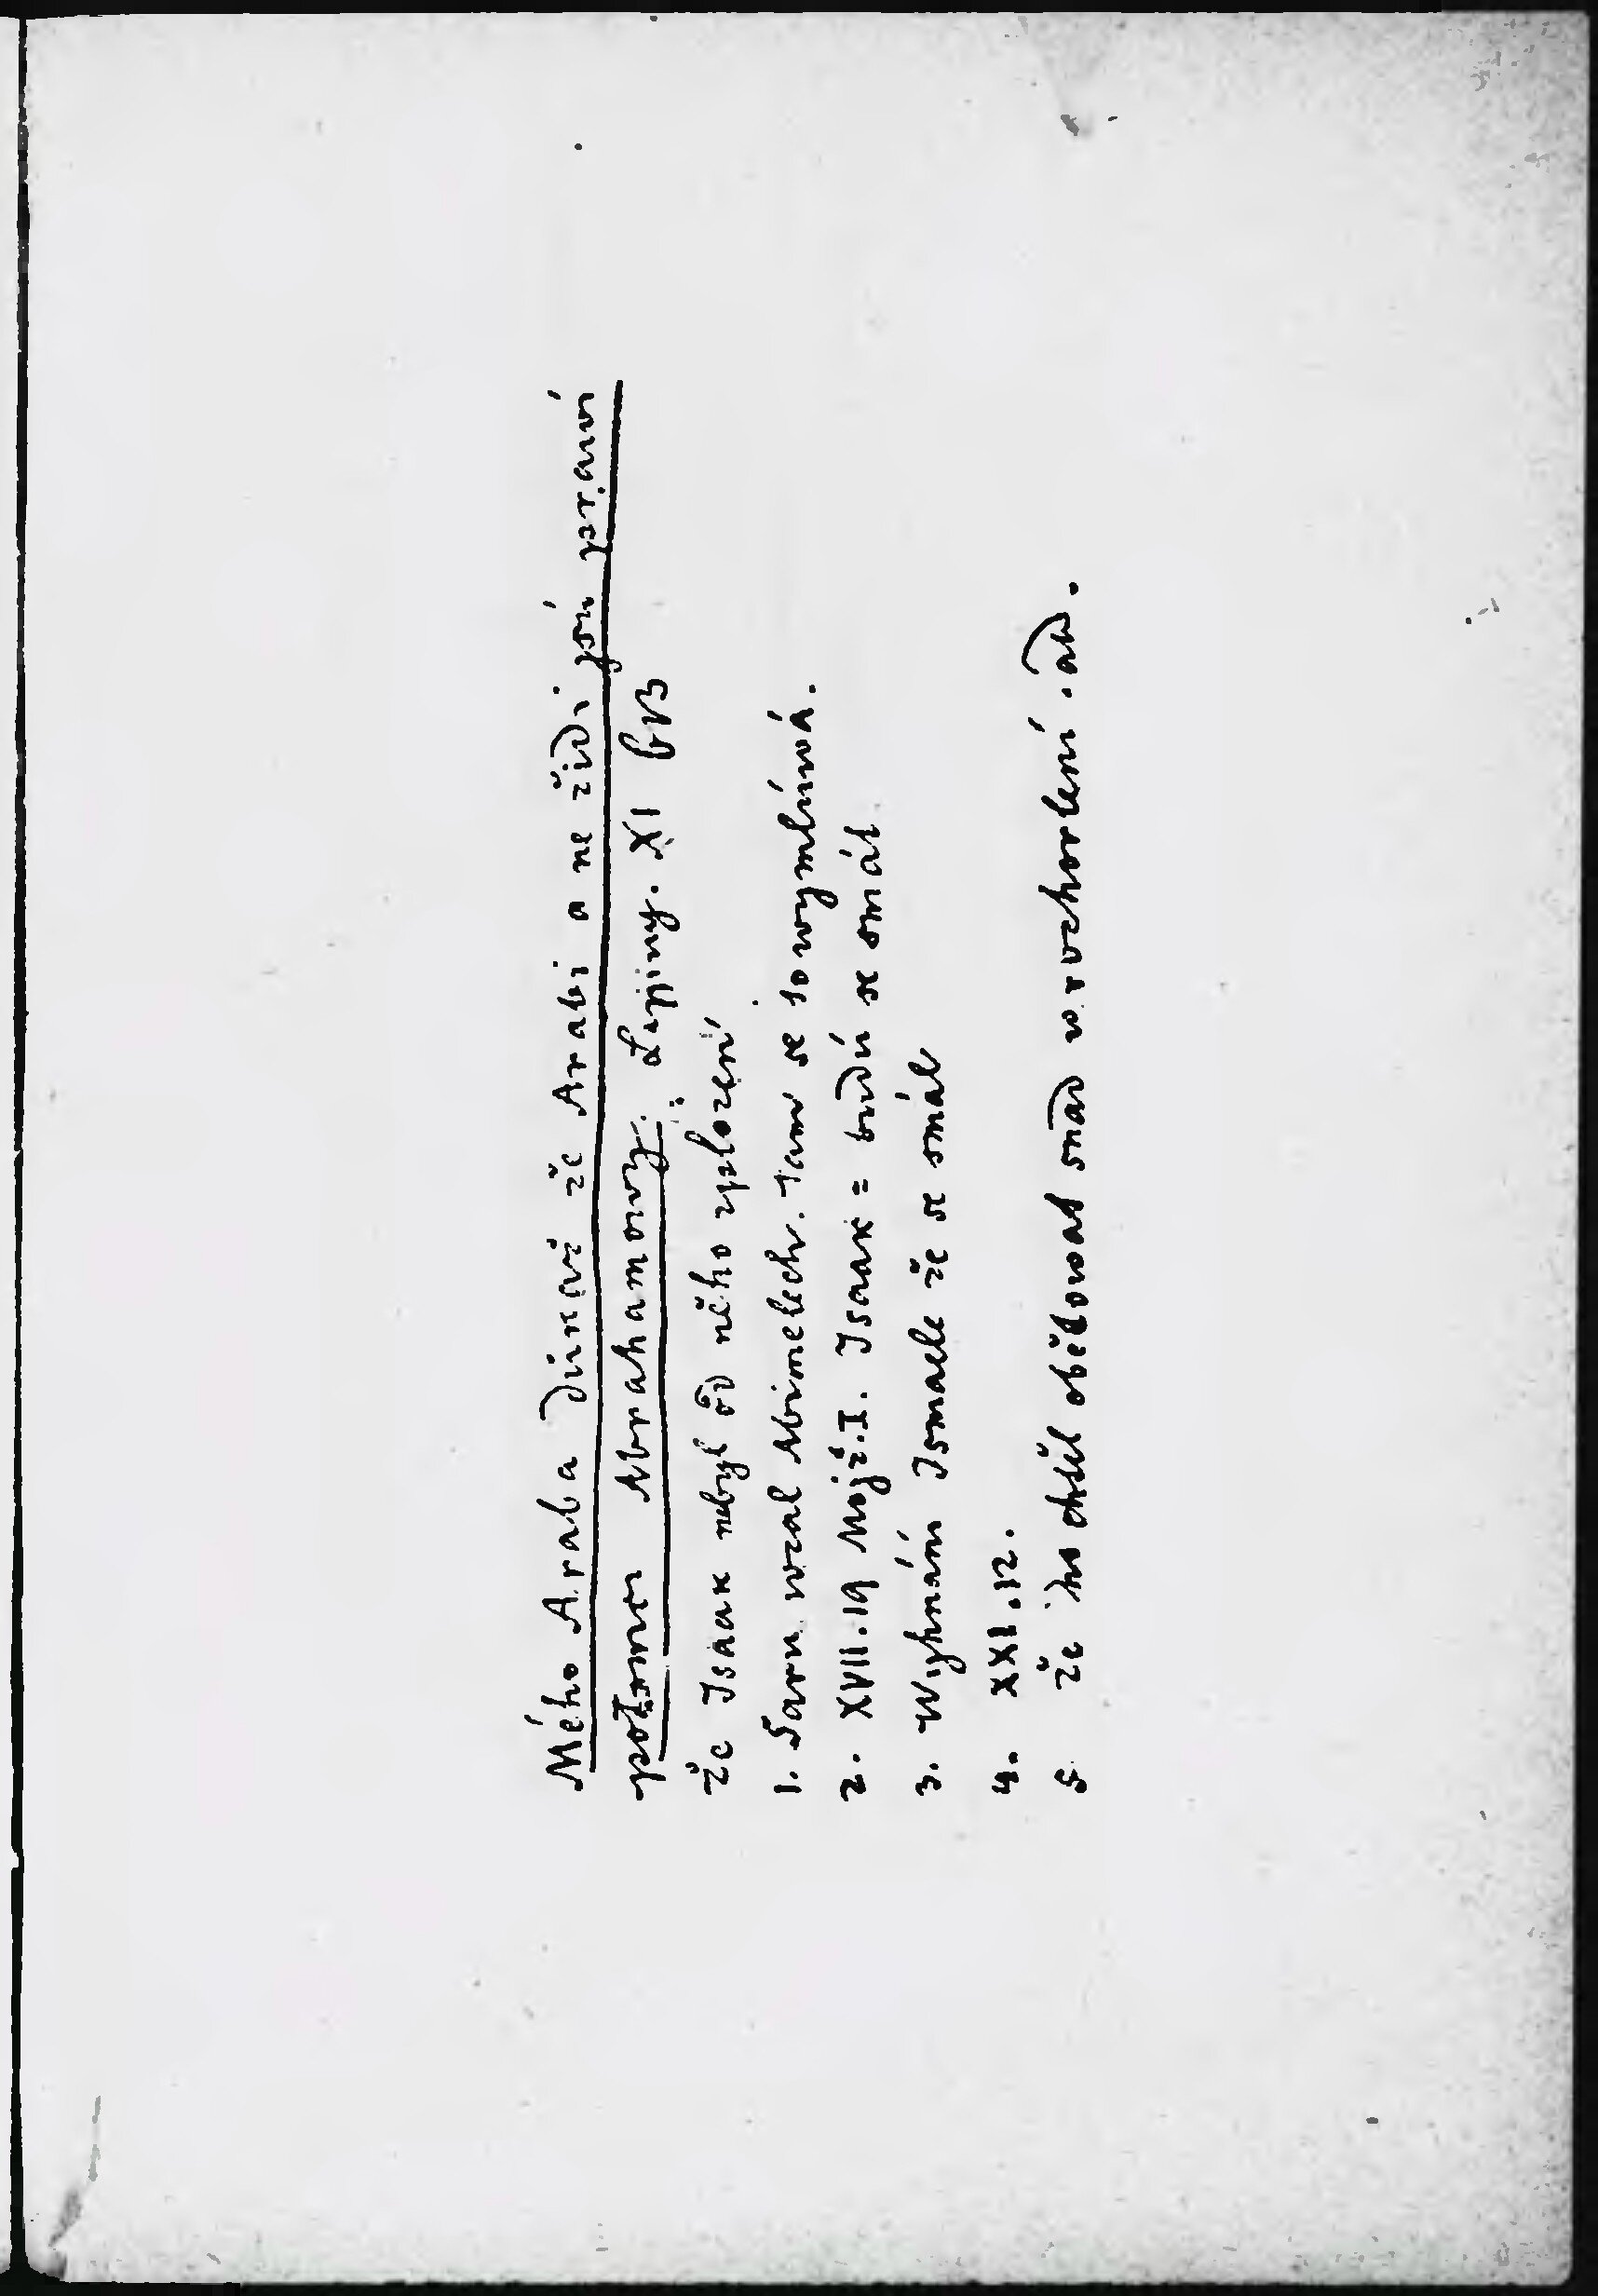 Mého Araba důkaz že Arabi a ne židi jsú praví
potomci Abrahamovy:
že Isaak nebyl od něho zplozen
1. Saru vzal Abimelech. Tam se to vymlúvá.
2. XVII.19 Mojž.I. Isaak = budú se smát
3. Wyhnání Ismaele že se smál
4. XXI.12.
5 že ho chtěl obětovat snad w rozhorlení. ad.